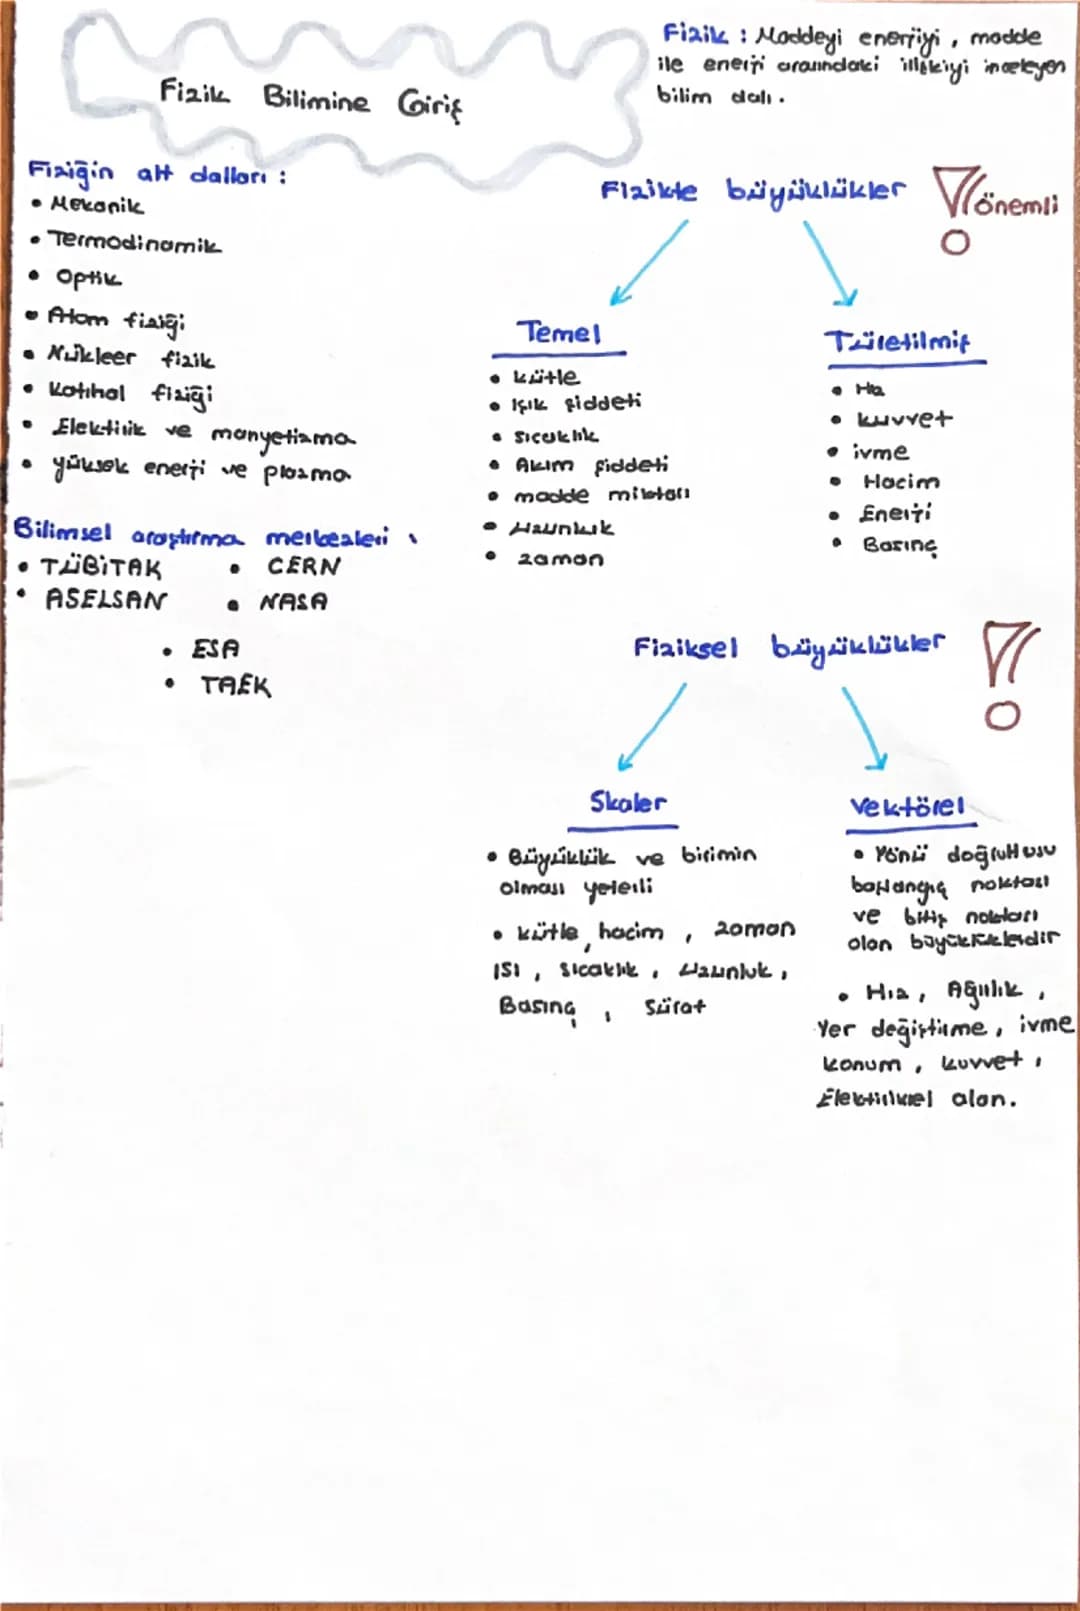 Fizik Bilimine Giriş
Fizik : Maddeyi enerjiyi , madde
ile enerji arasındaki ilişkiyi inceleyen
bilim dalı .
Fiziğin alt dalları :
• Mekanik
• Termodinamik
• Optik
• Atom fiziği
• Nükleer fizik
• Katıhal fiziği
• Elektirik ve manyetizma
• yüksek enerji ve plazma
Bilimsel araştırma merkezleri
• TÜBİTAK • CERN
• ASELSAN • NASA
• ESA
• TAEK
Fizikte büyüklükler
önemli
Temel
• kütle
• Işık şiddeti
• sıcaklık
• Akım şiddeti
• madde miktarı
• Uzunluk
• zaman
Türetilmiş
• Hız
• kuvvet
• ivme
• Hacim
• Enerji
• Basınç
Fiziksel büyüklükler
Skaler
• Büyüklük ve birimin
olması yeterli
• kütle , hacim , zaman
ISI , sıcaklık , Uzunluk ,
Basınç , Sürat
Vektörel
• Yönü doğrultusu
başlangıç noktası
ve bitiş noktası
olan büyüklüklerdir
• Hız , Ağırlık ,
Yer değiştirme , ivme
konum , kuvvet ,
Elektiriksel alan .